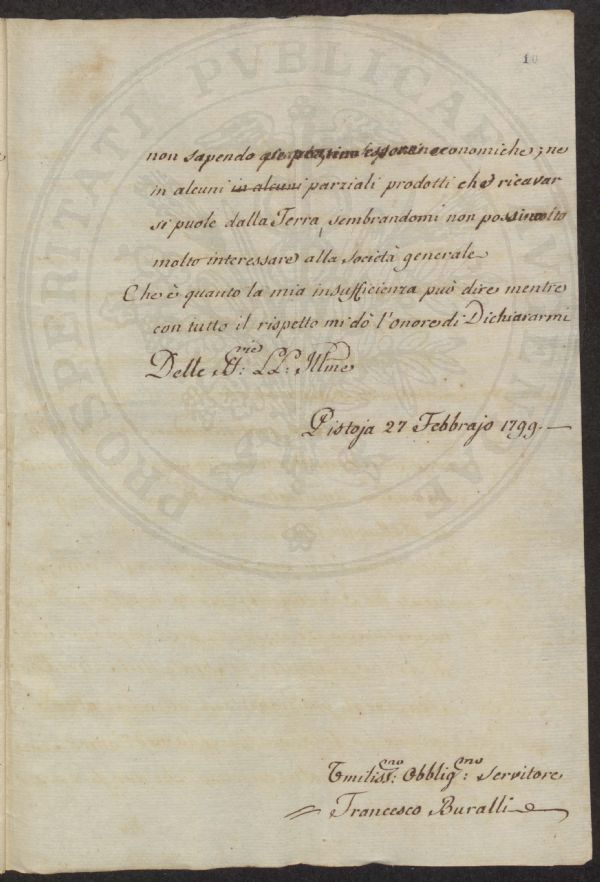 PROSPERITATI PUBLICAE AUGENDAE
10
non sapendo economiche; ne
in alcuni in alcuni parziali prodotti che ricavar
si puole dalla Terra, sembrandomi non possino
molto interessare alla società generale
Che è quanto la mia insufficienza può dire mentre
con tutto il rispetto mi dò l'onore di Dichiararmi
Delle S:rie LL: Illme
Pistoja 27 Febbrajo 1799.—
Umiliss:mo Obblig:mo Servitore
Francesco Buralli